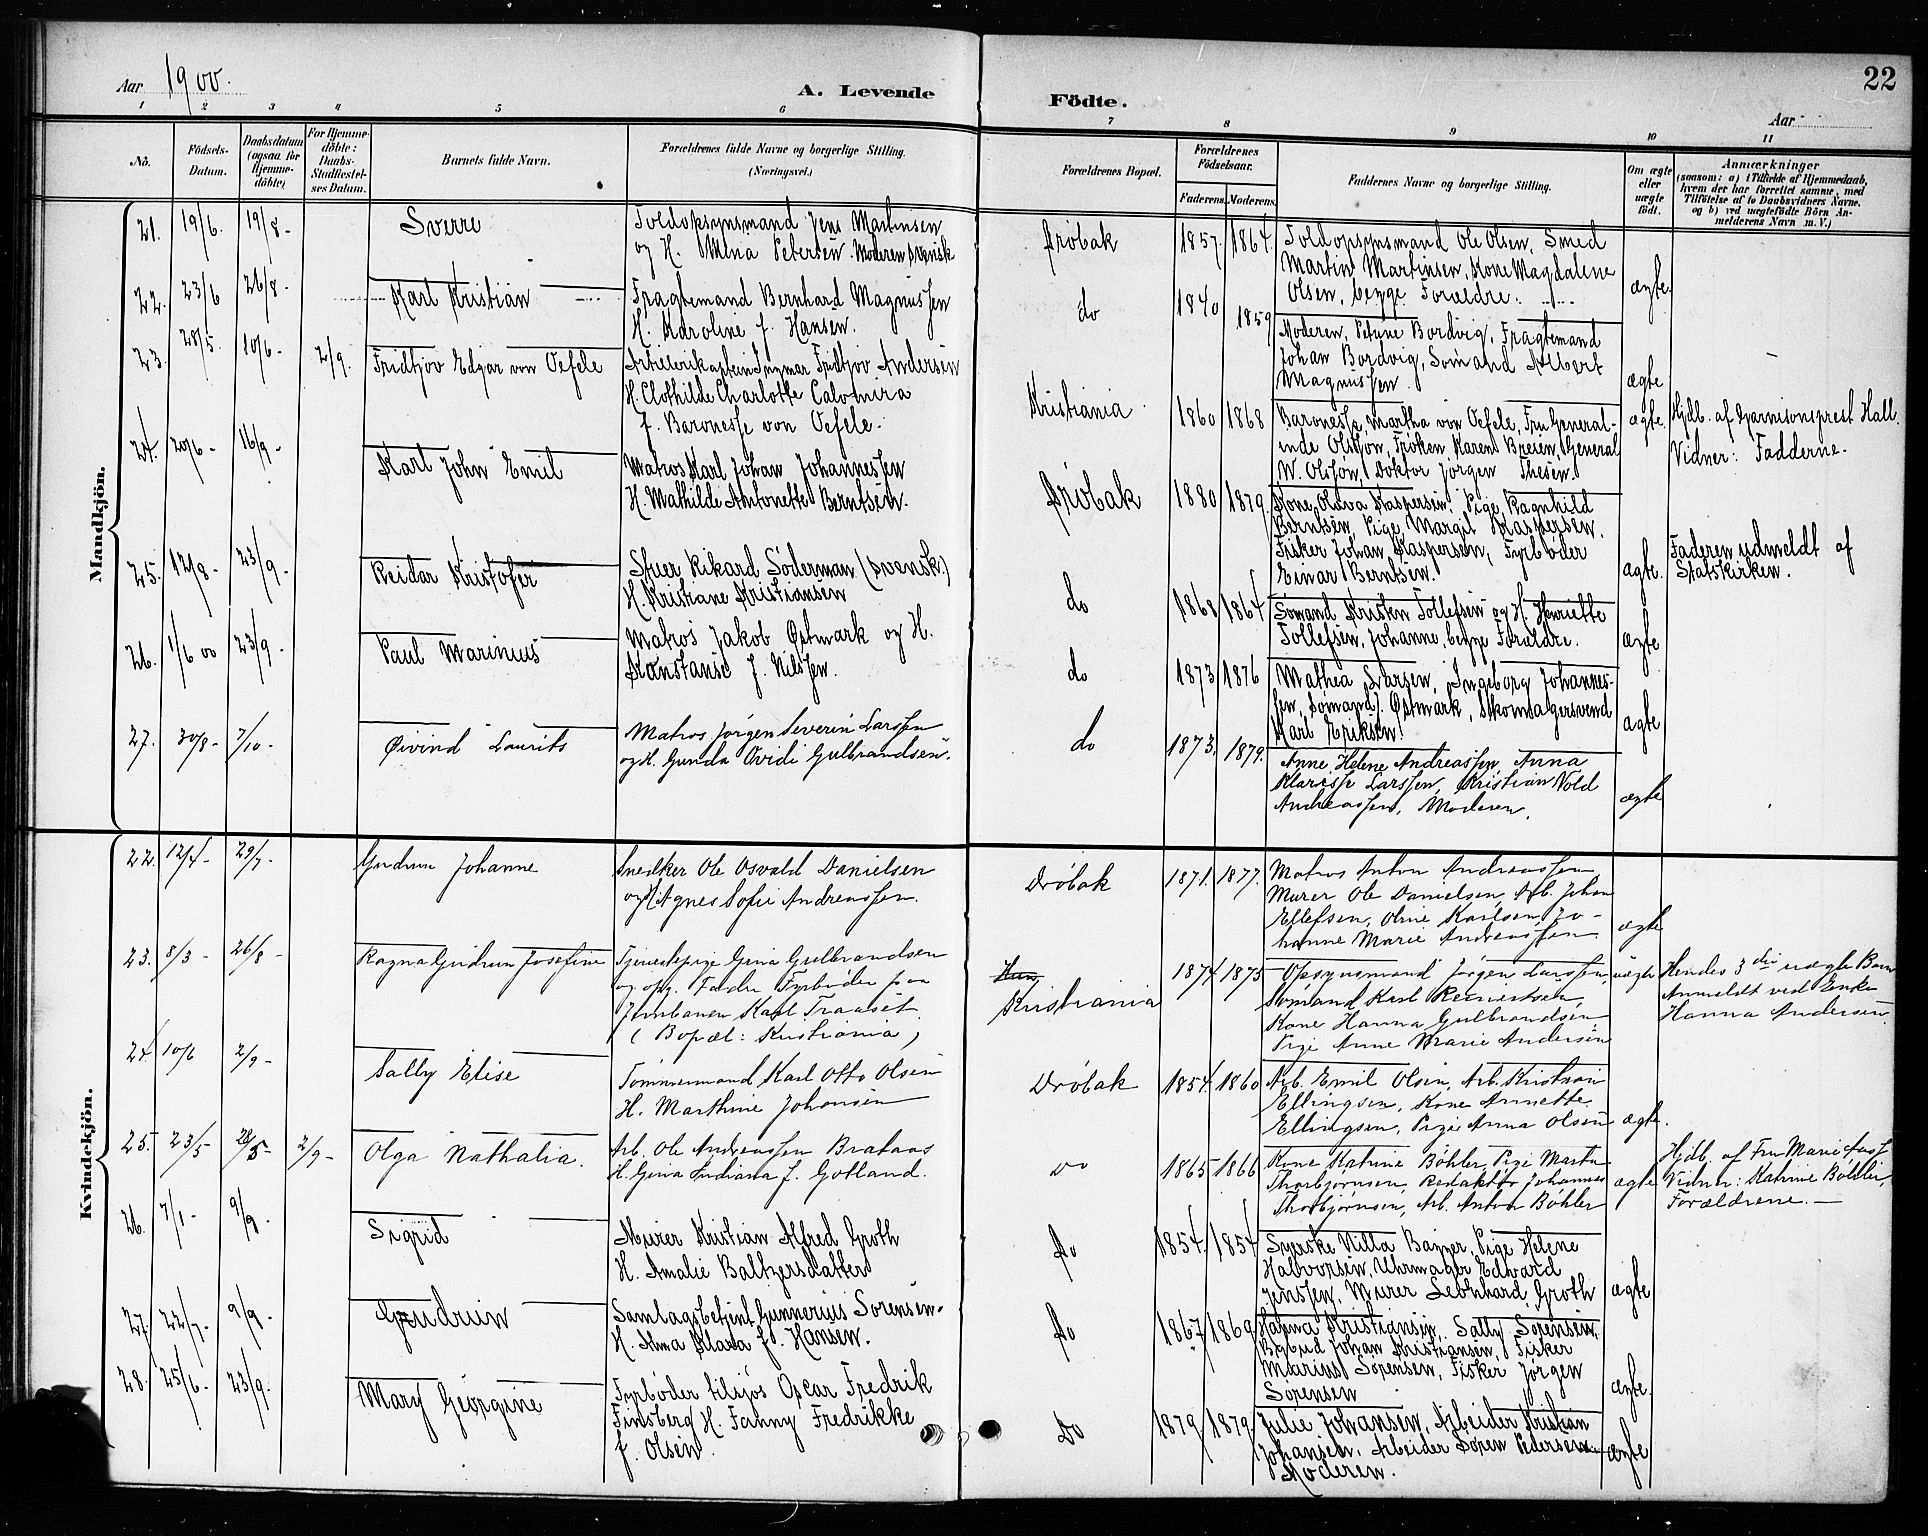 Aar 1900.
A. Levende
Födte.
Aar
22
1 2 3 4 5 6 7 8 9 10 11
No.
Födsels-
Datum.
Daabsdatum
(ogsaa for
Hjemme-
döbte)
For Hjemme-
döbte:
Daabs-
Stadfæstel-
ses Datum.
Barnets fulde Navn.
Forældrenes fulde Navne og borgerlige Stilling.
(Næringsvei.)
Forældrenes Bopæl.
Forældrenes
Födselsaar.
Faderens. Moderens.
Faddernes Navne og borgerlige Stilling.
Om ægte
eller
uægte
födt.
Anmærkninger
(saasom: a) i Tilfælde af Hjemmedaab,
hvem der har forrettet samme, med
Tilföielse af to Daabsvidners Navne,
og b) ved uægtefödte Börn An-
melderens Navn m. V.)
Mandkjön.
21. 19/6. 19/8- Sverre
Toldopsynsmand Jens Martinsen
og H. Mina Petersen. Moderen svensk
Drøbak 1857. 1864.
Toldopsynsmand Ole Olsen, Smed
Martin Martinsen, Kone Magdalene
Olsen, begge Forældre.
ægte.
22. 23/6 26/8- Karl Kristian
Fragtemand Bernhard Magnussen
H. Karoline f. Hansen.
do 1840 1859
Moderen, Petrine Bordvig, Fragtemand
Johan Bordvig, Sømand Albert
Magnussen.
ægte
23. 28/5. 10/6- 2/9. Fridtjov Edgar von Oefele
Artillerikaptein Ingmar Fridtjov Andersen
H. Clothilde Charlotte Calomira
f. Baronesse von Oefele.
Kristiania 1860 1868
Baronesse Martha von Oefele, Fru General-
inde Olsson, Frøken Karen Breien, General
W. Olsson, Doktor Jørgen Thesen.
ægte
Hjdb. af Garnisonsprest Hall.
Vidner: Fadderne.
24. 20/6- 16/9- Karl John Emil
Matros Karl Johan Johannessen
H. Mathilde Antonette Berntsen.
Drøbak 1880 1879.
Kone Olava Kaspersen, Pige Ragnhild
Berntsen, Pige Margit Kaspersen.
Fisker Johan Kaspersen, Fyrbøder
Einar Berntsen.
ægte.
25. 12/8- 23/9- Reidar Kristofer
Stuer Rikard Söderman (svensk.)
H. Kristiane Kristiansen
do 1868 1864
Sømand Kristen Tollefsen og H. Henriette
Tollefsen, Johanne, begge Forældre.
ægte
Faderen udmeldt af
Statskirken.
26. 1/6 00 23/9- Paul Marinius
Matros Jakob Østmark og H.
Konstanse f. Nilssen.
do 1873 1876
Mathea Larsen, Ingeborg Johannes-
sen, Sømand J. Østmark, Skomagersvend
Karl Eriksen.
ægte
27. 30/8- 7/10- Øivind Laurits
Matros Jørgen Severin Larssen
og H. Gunda Ovidi Gulbrandsen.
do 1873. 1879.
Anne Helene Andreassen, Anna
Klarisse Larssen, Kristian Vold
Andreassen, Moderen.
ægte
Kvindekjön.
22. 12/4- 29/7- Gudrun Johanne
Snedker Ole Osvald Danielsen
og H. Agnes Sofie Andreassen.
Drøbak 1871. 1877.
Matros Anton Andreassen
Murer Ole Danielsen, Arb. Johan
Ellefsen, Oline Karlsen, Jo-
hanne Marie Andreassen.
ægte
23. 8/3- 26/8- Ragna Gudrun Josefine
Tjenestepige Gina Gulbrandsen
og opg. Fader Fyrbøder paa
Jernbanen Karl Traaset
(Bopæl: Kristiania)
Kristiania 1874 1875
Opsynsmand Jørgen Larssen,
Sømand Karl Reinertsen,
Kone Hanna Gulbrandsen
Pige Anne Marie Andersen
uægte
Hendes 3die uægte Barn
Anmeldt ved Enke
Hanna Andersen.
24. 10/6 2/9- Sally Elise
Tømmermand Karl Otto Olsen
H. Marthine Johansen
Drøbak 1854. 1860
Arb. Emil Olsen, Arb. Kristian
Ellingsen, Kone Annette
Ellingsen, Pige Anna Olsen
ægte.
25. 23/5- 28/5- 2/9- Olga Nathalia.
Arb. Ole Andreassen Brataas
H. Gina Indiana f. Gotland.
do 1865 1866
Kone Katrine Bøhler, Pige Marta
Thorbjørnsen, Redaktør Johannes
Thorbjørnsen, Arb. Anton Bøhler
ægte
Hjdb. af Fru Marie
Vidner: Katrine Bøhler,
Forældrene.
26. 7/1- 9/9- Sigrid
Murer Kristian Alfred Groth
H. Amalie Baltzersdatter
do 1854. 1854
Syerske Villa Banner, Pige Helene
Halvorsen, Uhrmager Edvard
Jenssen, Murer Leonhard Groth
ægte
27. 22/7- 9/9- Gudrun
Samlagsbetjent Gunnerius Sørensen.
H. Anna Klara f. Hansen.
do 1867 1869
Hanna Kristiansen, Sally Sørensen,
Bybud Johan Kristiansen, Fisker
Marius Sørensen, Fisker Jørgen
Sørensen
ægte.
28. 25/6- 23/9. Mary Georgine
Fyrbøder tilsjøs Oscar Fredrik
Finsberg H. Fanny Fredrikke
f. Olsen.
Do 1879 1879
Julie Johansen, Arbeider Kristian
Johansen, Arbeider Søren Pedersen
Moderen.
ægte